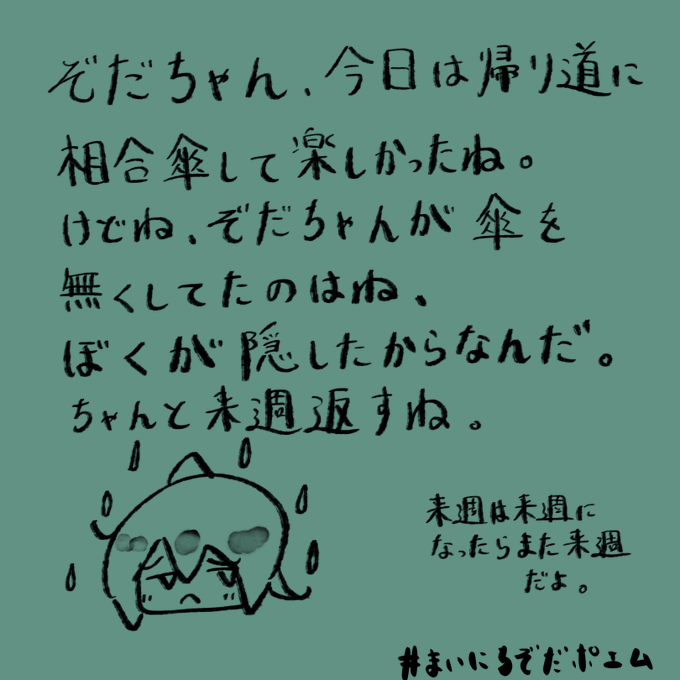 ぞだちゃん、今日は帰り道に
相合傘して楽しかったね。
けどね、ぞだちゃんが傘を
無くしてたのはね、
ぼくが隠したからなんだ。
ちゃんと来週返すね。
来週は来週に
なったらまた来週
だよ。
#まいにちぞだポエム